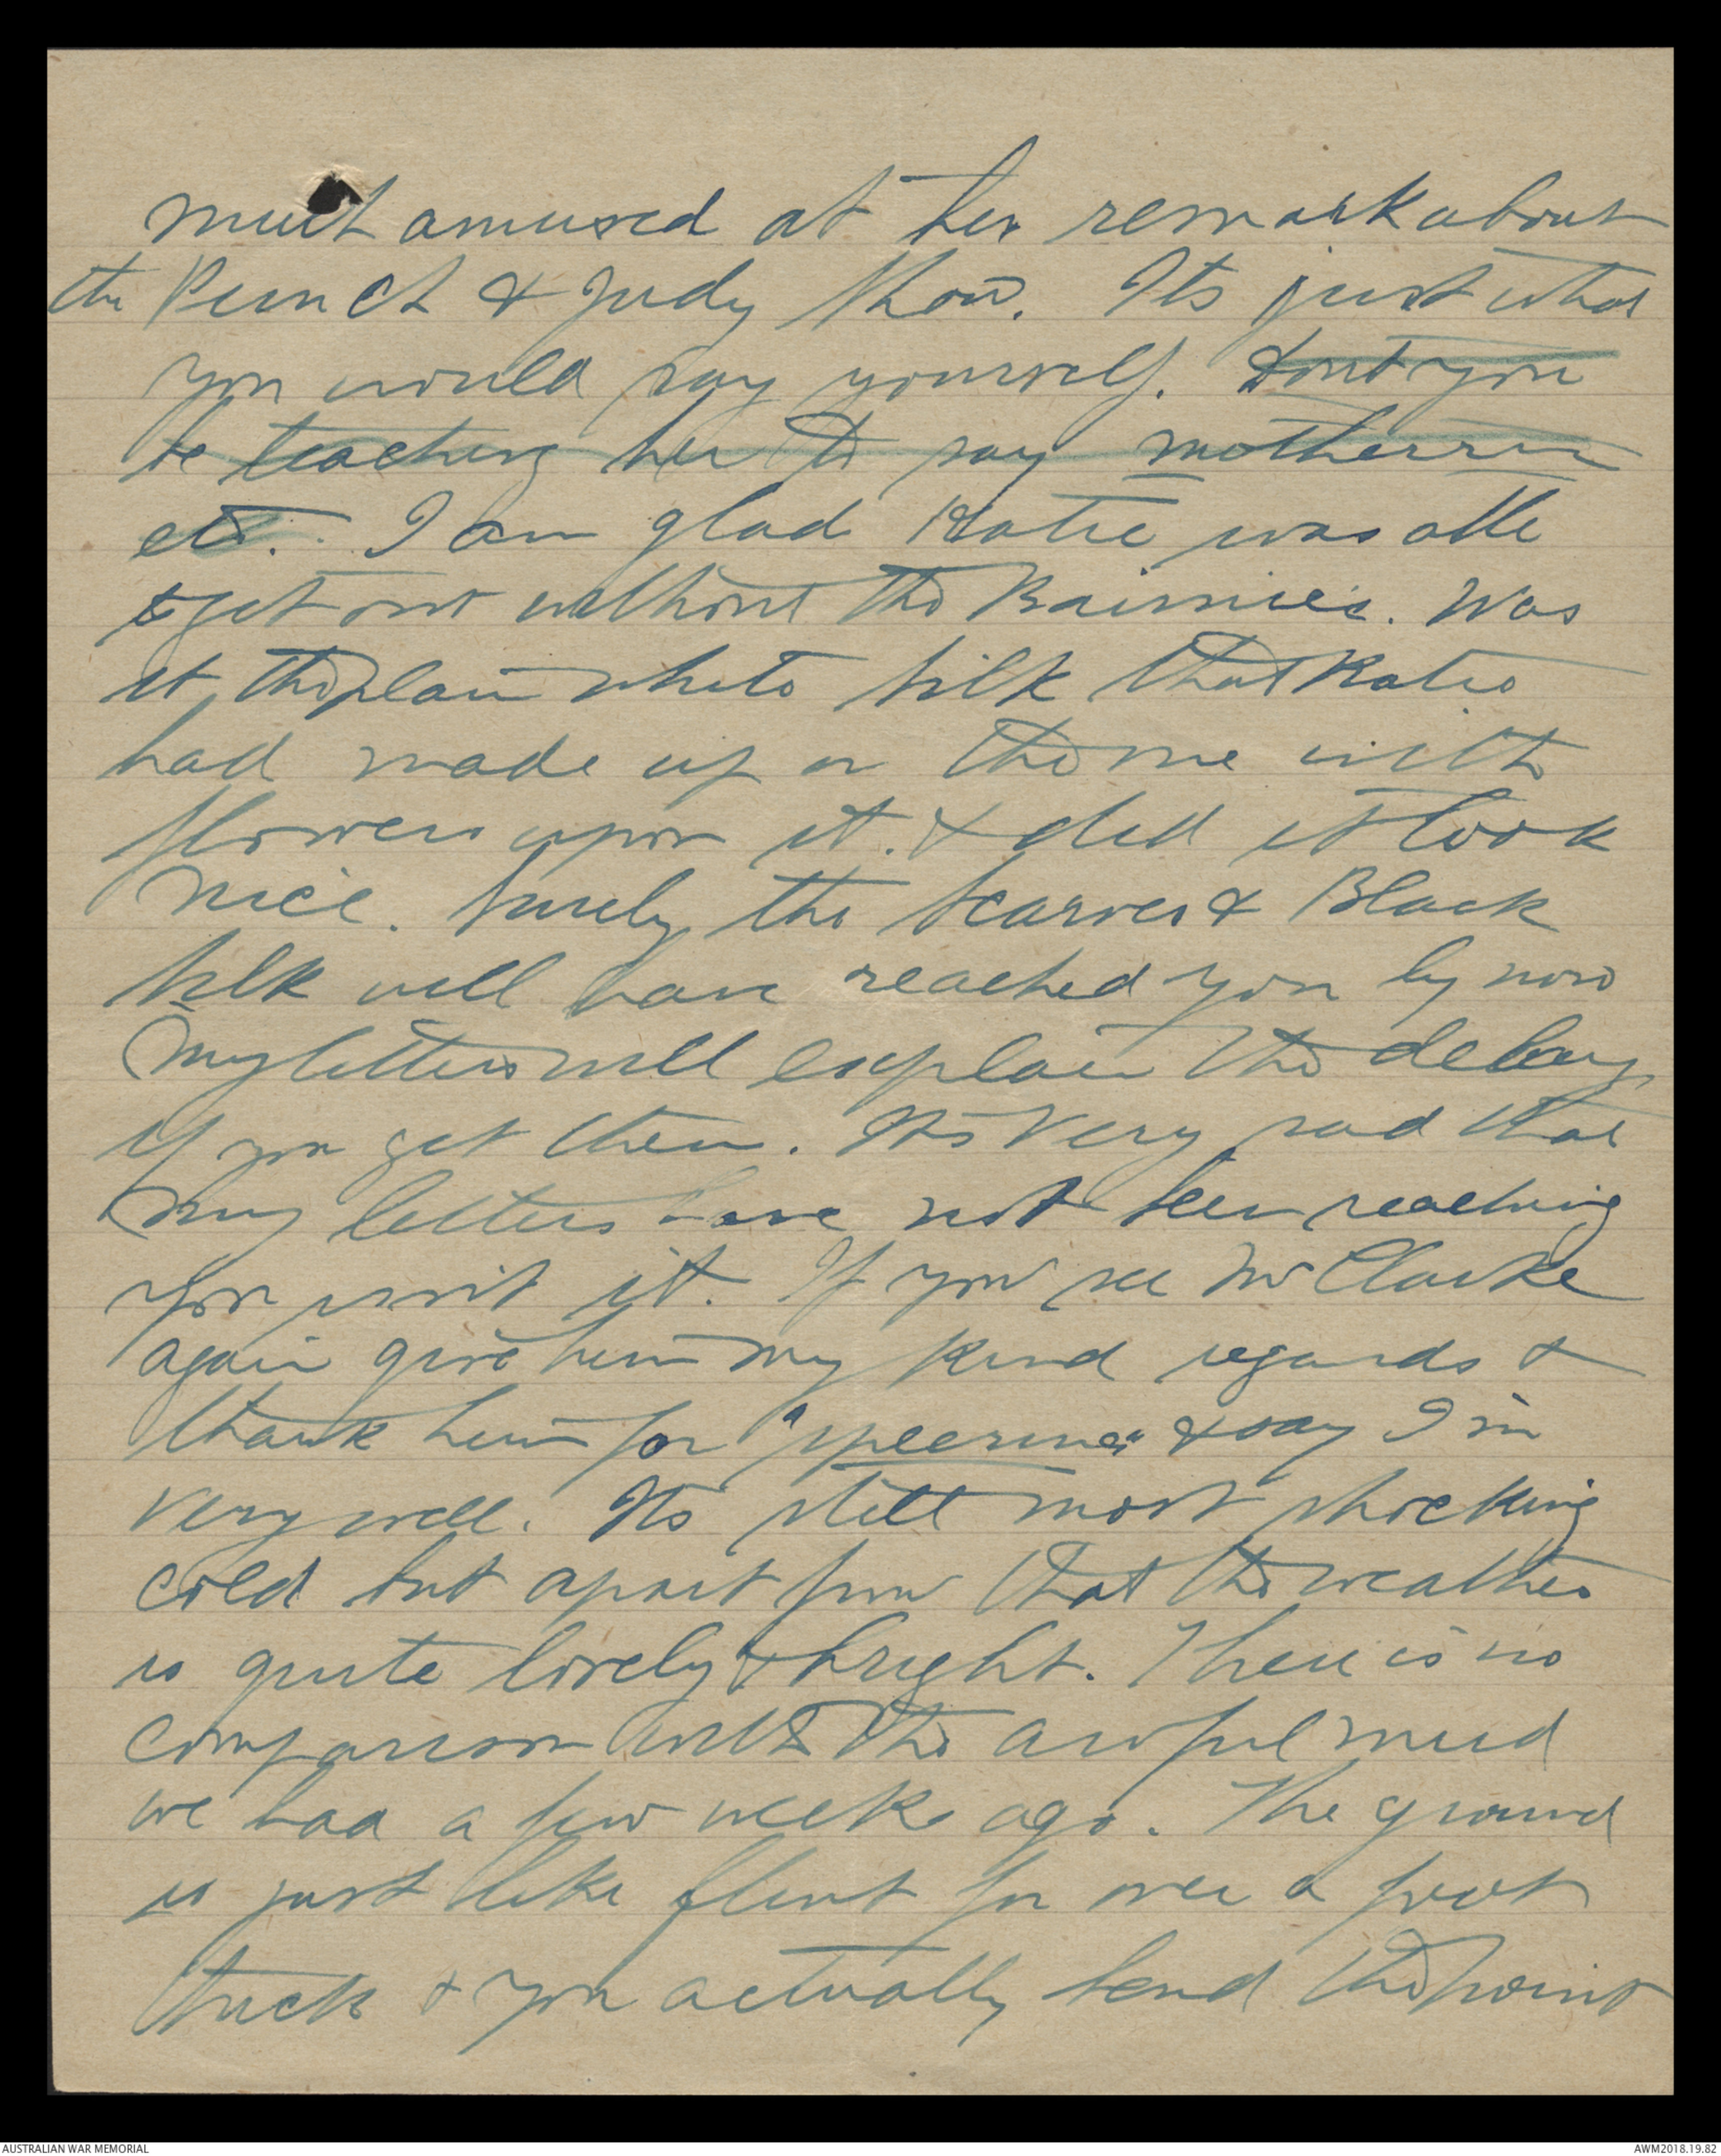 much amused at her remark about
the Punch & Judy Show. Its just what
you would say yourself. dont you
be teaching her to say
etc. I am glad Katie was able
to get out without the Bairnies. Was
it the plain white silk that Katie
had made up or the one with
flowers upon it. & did it look
nice. Surely the Scarves & Black
Silk will have reached you by now
My letters will explain the delay
if you get them. Its very sad that
my letters have not been reaching
you isn't it. If you see Mr Clarke
again give him my kind regards &
thank him for " " & say I'm
very well. Its still most shocking
cold but apart from that the weather
is quite lovely & bright. There is no
comparison with the awful mud
we had a few weeks ago. The ground
is just like flint for over a foot
thick & you actually bend the point
AUSTRALIAN WAR MEMORIAL
AWM2018.19.82